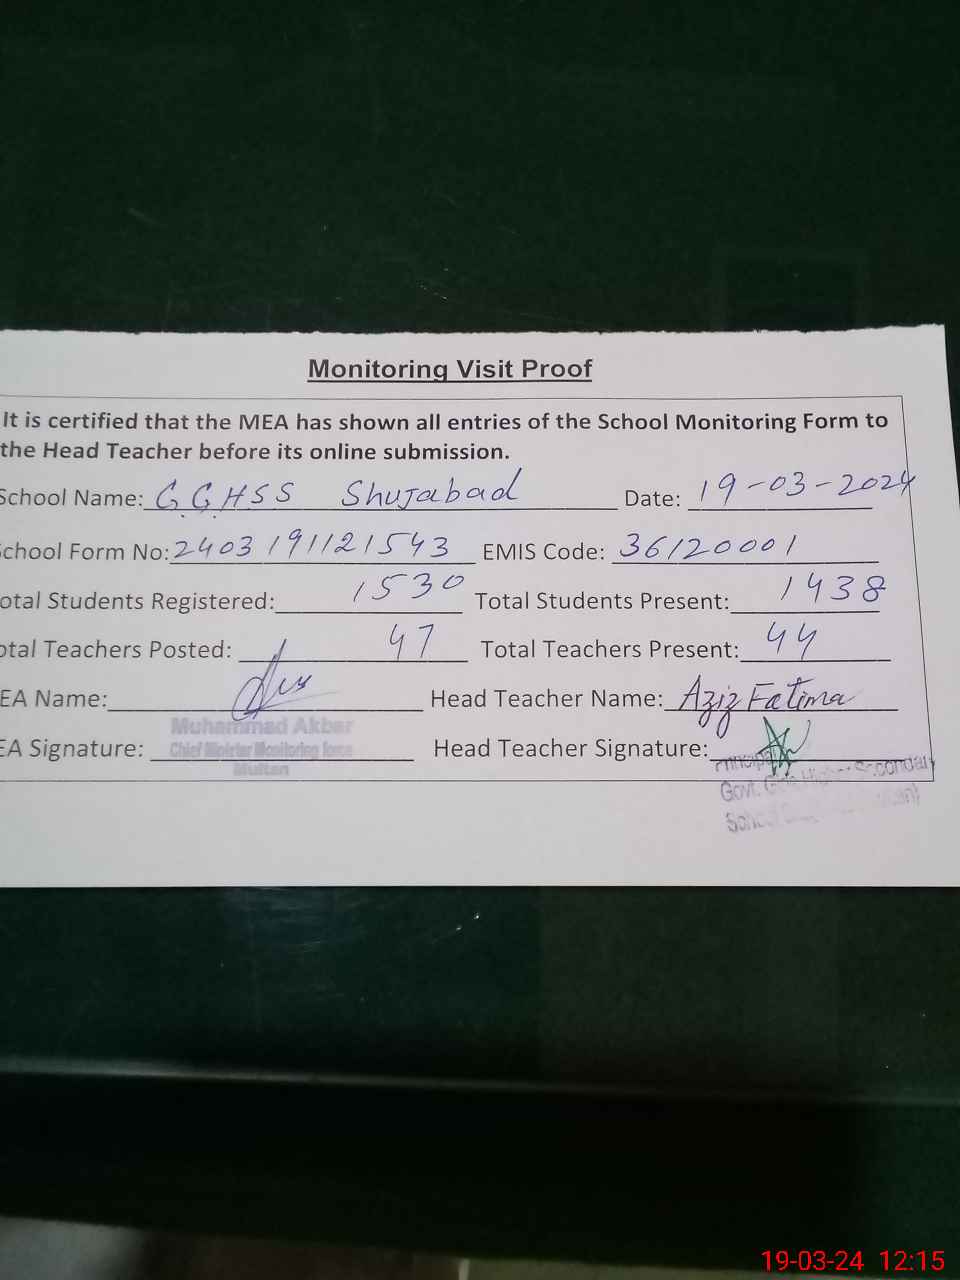 Monitoring Visit Proof
It is certified that the MEA has shown all entries of the School Monitoring Form to
the Head Teacher before its online submission.
School Name: GGHSS Shujabad Date: 19-03-2024
chool Form No: 2403191121543 EMIS Code: 36120001
otal Students Registered: 1530 Total Students Present: 1438
otal Teachers Posted: 47 Total Teachers Present: 44
EA Name: Head Teacher Name: Aziz Fatima
Muhammad Akbar
EA Signature: Head Teacher Signature:
Chief Minister Monitoring force
Multan
Principal
Govt. Girls Higher Secondary
School
19-03-24 12:15